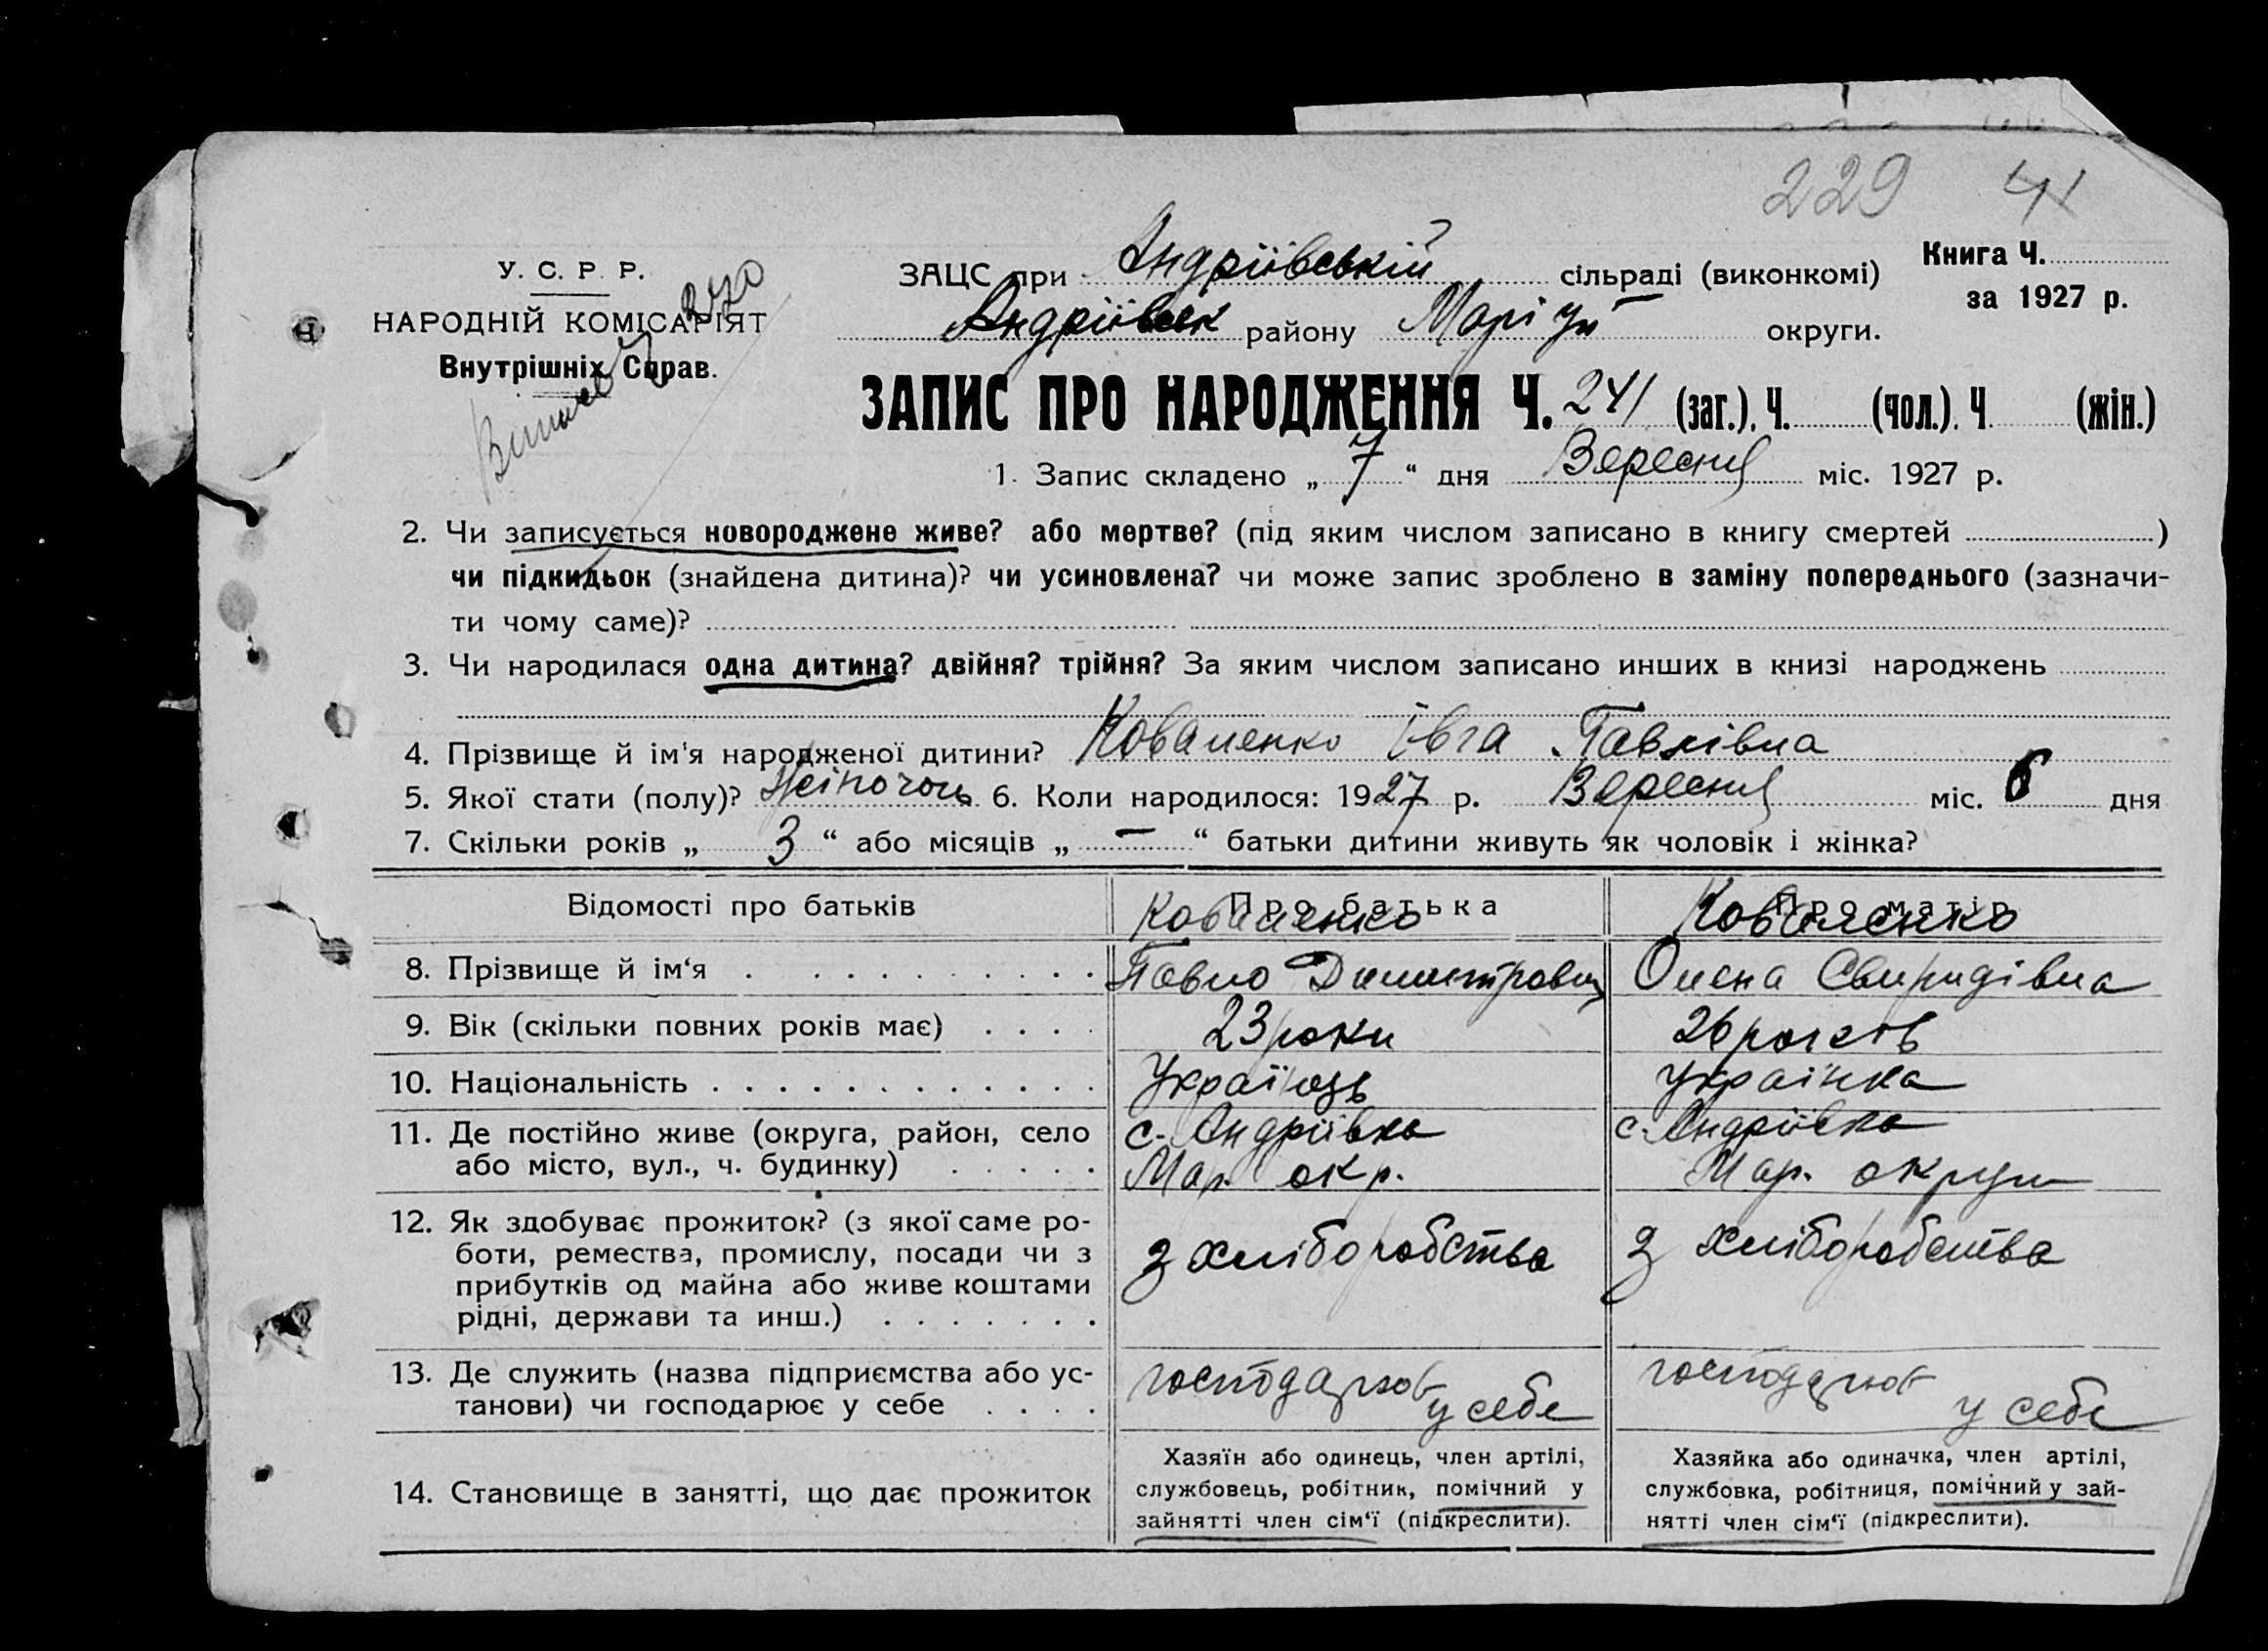 229 41
У. С. Р. Р.
НАРОДНІЙ КОМІСАРІЯТ
Внутрішніх Справ.
ЗАЦС при Андріївській сільраді (виконкомі)
Андріївськ району Маріуп округи.
Книга Ч.
за 1927 р.
ЗАПИС ПРО НАРОДЖЕННЯ Ч. 241 (заг.). Ч. (чол.). Ч (жін.)
1. Запис складено „ 7 “ дня Вересня міс. 1927 р.
2. Чи записується новороджене живе? або мертве? (під яким числом записано в книгу смертей )
чи підкидьок (знайдена дитина)? чи усиновлена? чи може запис зроблено в заміну попереднього (зазначи-
ти чому саме)?
3. Чи народилася одна дитина? двійня? трійня? За яким числом записано инших в книзі народжень
4. Прізвище й ім'я народженої дитини? Коваленко Ївга Павлівна
5. Якої стати (полу)? Жіночоь 6. Коли народилося: 1927 р. Вересня міс. 6 дня
7. Скільки років „ 3 “ або місяців „ — “ батьки дитини живуть як чоловік і жінка?
Відомості про батьків Про батька Про матір
Коваленко Коваленко
8. Прізвище й ім‘я Павло Димитрович Олена Свиридівна
9. Вік (скільки повних років має) 23 роки 26 років
10. Національність Українць українка
11. Де постійно живе (округа, район, село с. Андріївка с. Андріївка
або місто, вул., ч. будинку) Мар. окр. Мар. округи
12. Як здобуває прожиток? (з якої саме ро-
боти, ремества, промислу, посади чи з з хліборобства з хліборобства
прибутків од майна або живе коштами
рідні, держави та инш.)
13. Де служить (назва підприємства або ус- господарює господарює
танови) чи господарює у себе у себе у себе
14. Становище в занятті, що дає прожиток
Хазяїн або одинець, член артілі,
службовець, робітник, помічний у
зайнятті член сім‘ї (підкреслити).
Хазяйка або одиначка, член артілі,
службовка, робітниця, помічний у зай-
нятті член сім‘ї (підкреслити).